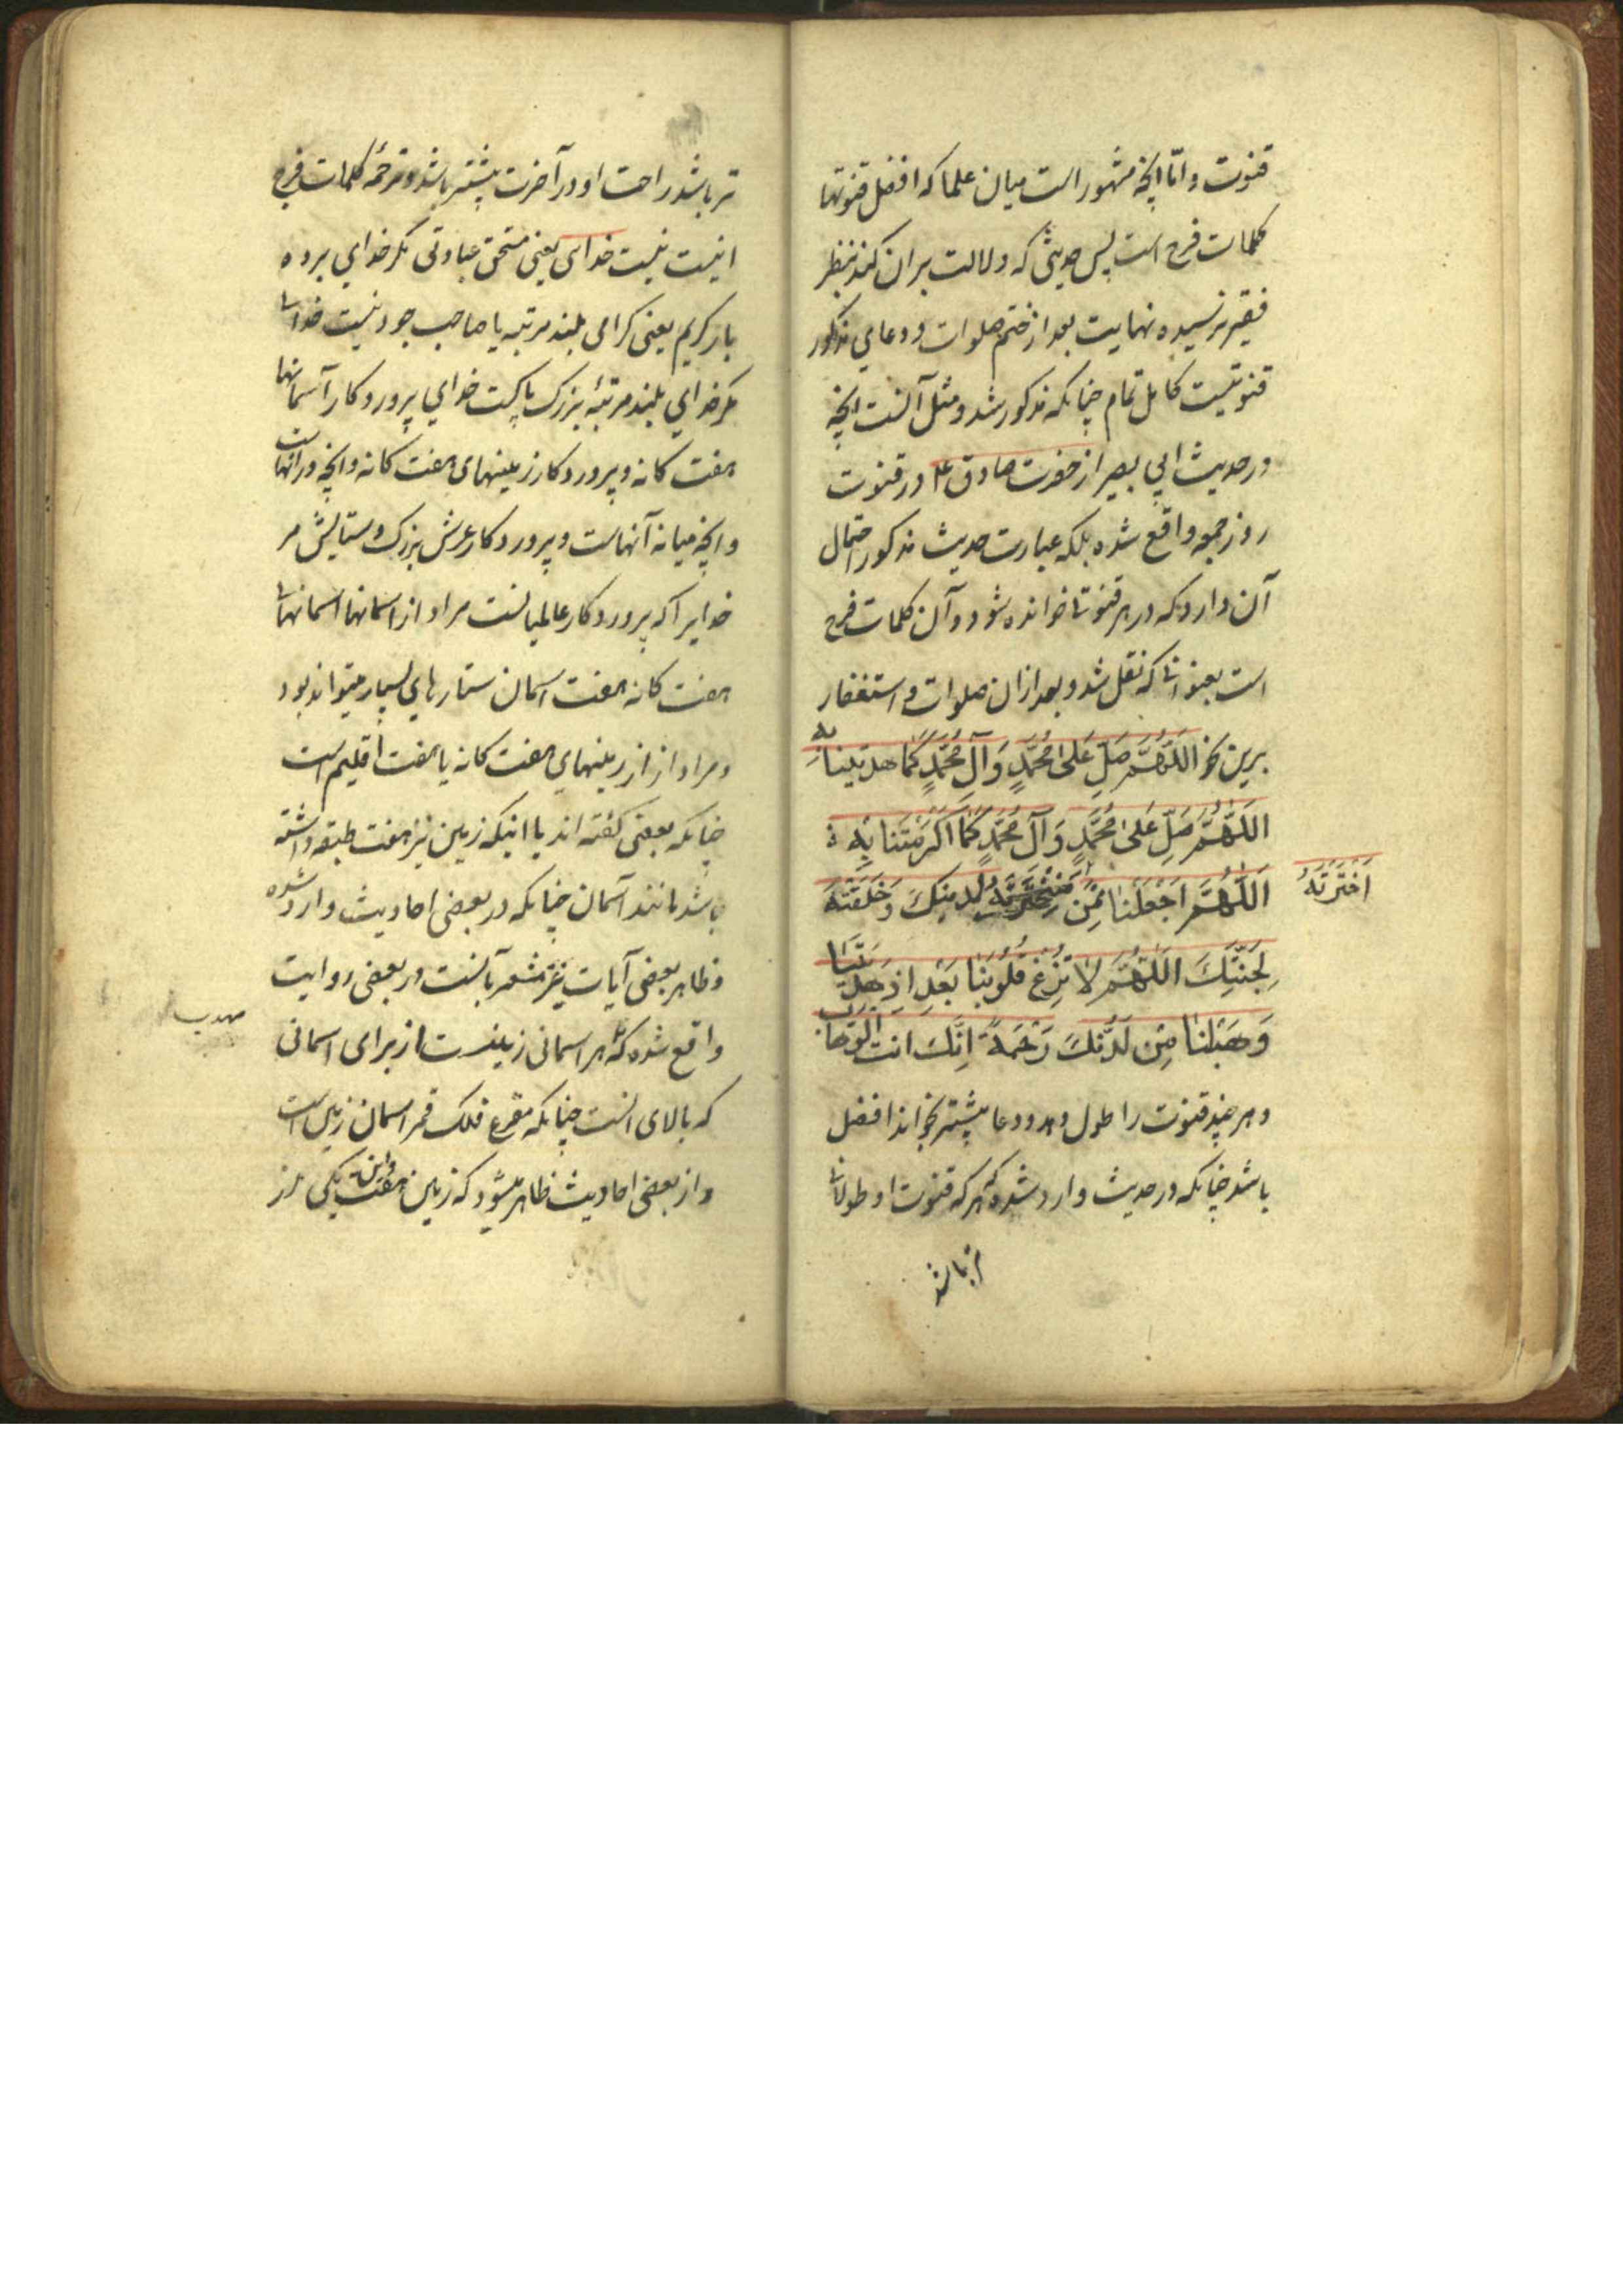 قنوت و امّا انچه مشهور است میان علما که افضل قنوتها
کلمات فرح است پس حدیثی که دلالت بران کند بنظر
فقیر نرسیده نهایت بعد از ختم صلوات و دعای مذکور
قنوتیست کامل تمام چنانکه مذکور شد و مثل آنست انچه
در حدیث ابی بصیر از حضرت صادق ع در قنوت
روز جمعه واقع شده بلکه عبارت حدیث مذکور احتمال
آن دارد که در هر قنوتی خوانده شود و آن کلمات فرح
است بعنوانی که نقل شد و بعد ازان صلوات و استغفار
برین نحو اللَّهُمَّ صَلِّ عَلیٰ مُحَمَّدٍ وَآلِ مُحَمَّدٍ کَمٰا هدیتنا بِهِ
اللَّهُمَّ صَلِّ عَلیٰ مُحَمَّدٍ وَآلِ مُحَمَّدٍ کَمٰا اَکْرَمْتَنا بِهِ
اَللَّهُمَّ اجْعَلْنٰا مِمَّن لدینک وَخَلَقْتَهُ
اَخْتَرْتَهُ
لِجَنَّتِکَ اللَّهُمَّ لاٰ تُزِغْ قُلُوبَنٰا بَعْدَ اِذ هَدَیْتَنٰا
وَهَبْلَنٰا مِن لَدُنْکَ رَحْمَةً اِنَّکَ انت الوَهّاب
و هر چند قنوت را طول دهد و دعا بیشتر بخواند افضل
باشد چنانکه در حدیث وارد شده که هر که قنوت او طولانی
تر باشد
تر باشد راحت او در آخرت بیشتر باشد و ترجمهٔ کلمات فرح
اینست نیست خدائی یعنی مستحق عبادتی مگر خدای برده
بار کریم یعنی کرامی بلند مرتبه یا صاحب جود نیست خدائی
مگر خدای بلند مرتبهٔ بزرک پاکست خدای پروردکار آسمانها
هفت کانه و پروردکار زمینهای هفت کانه و انچه در انهاست
و انچه میانه آنهاست و پروردکار عرش بزرک و ستایش مر
خدایرا که پروردکار عالمیانست مراد از اسمانها اسمانهای
هفت کانه هفت اسمان ستارهای سیار میتواند بود
و مراد از از زمینهای هفت کانه یا هفت اقلیم است
چنانکه بعضی کفته اند یا اینکه زمین نیز هفت طبقه داشته
باشد مانند آسمان چنانکه در بعضی احادیث وارد شده
و ظاهر بعضی آیات نیز مشعر بآنست در بعضی روایت
واقع شده که هر اسمانی زمینست از برای اسمانی
که بالای انست چنانکه مقعر فلک قمر اسمان زمین است
و از بعضی احادیث ظاهر میشود که زمین هفت یکی از